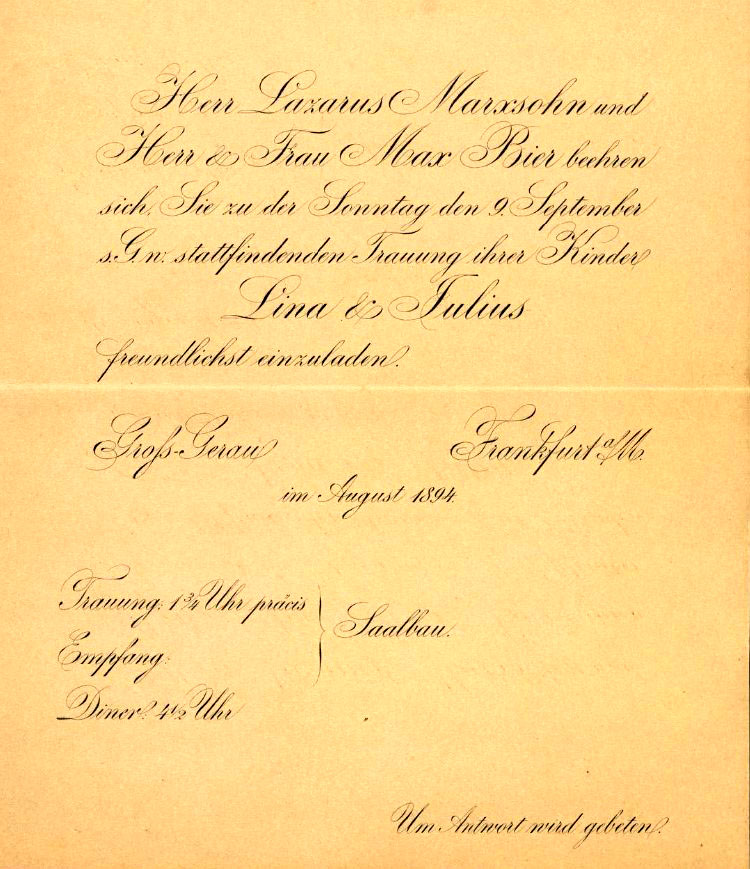 Herr Lazarus Marxsohn und
Herr & Frau Max Bier beehren
sich, Sie zu der Sonntag den 9. September
s. G. w. stattfindenden Trauung ihrer Kinder
Lina & Julius
freundlichst einzuladen.
Groſs-Gerau
Frankfurt a/M.
im August 1894.
Trauung: 1 3/4 Uhr präcis
Empfang:
Saalbau.
Diner: 4 1/2 Uhr
Um Antwort wird gebeten.